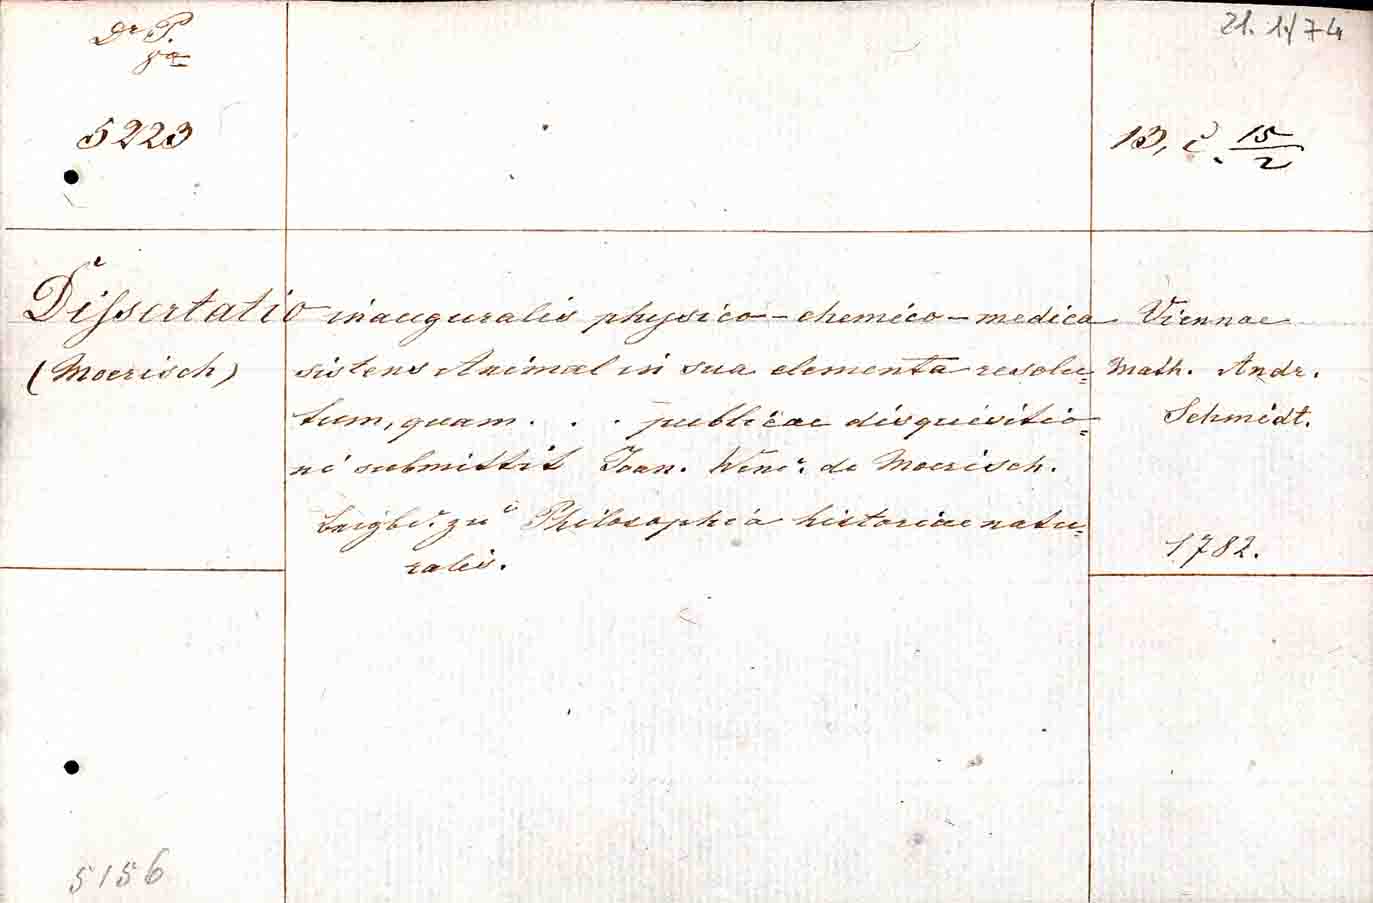 Dr P.
8o
5223
21. 1/74
13, c. 15/2
Dissertatio inauguralis physico-chemico-medica
(Moerisch) sistens Animal in sua elementa resolu=
tum, quam . . . publicae disquisitio=
ni submittit Joan. Wenc. de Moerisch.
zu Philosophia historiae natu=
ralis.
Viennae
Math. Andr.
Schmidt.
1782.
5156